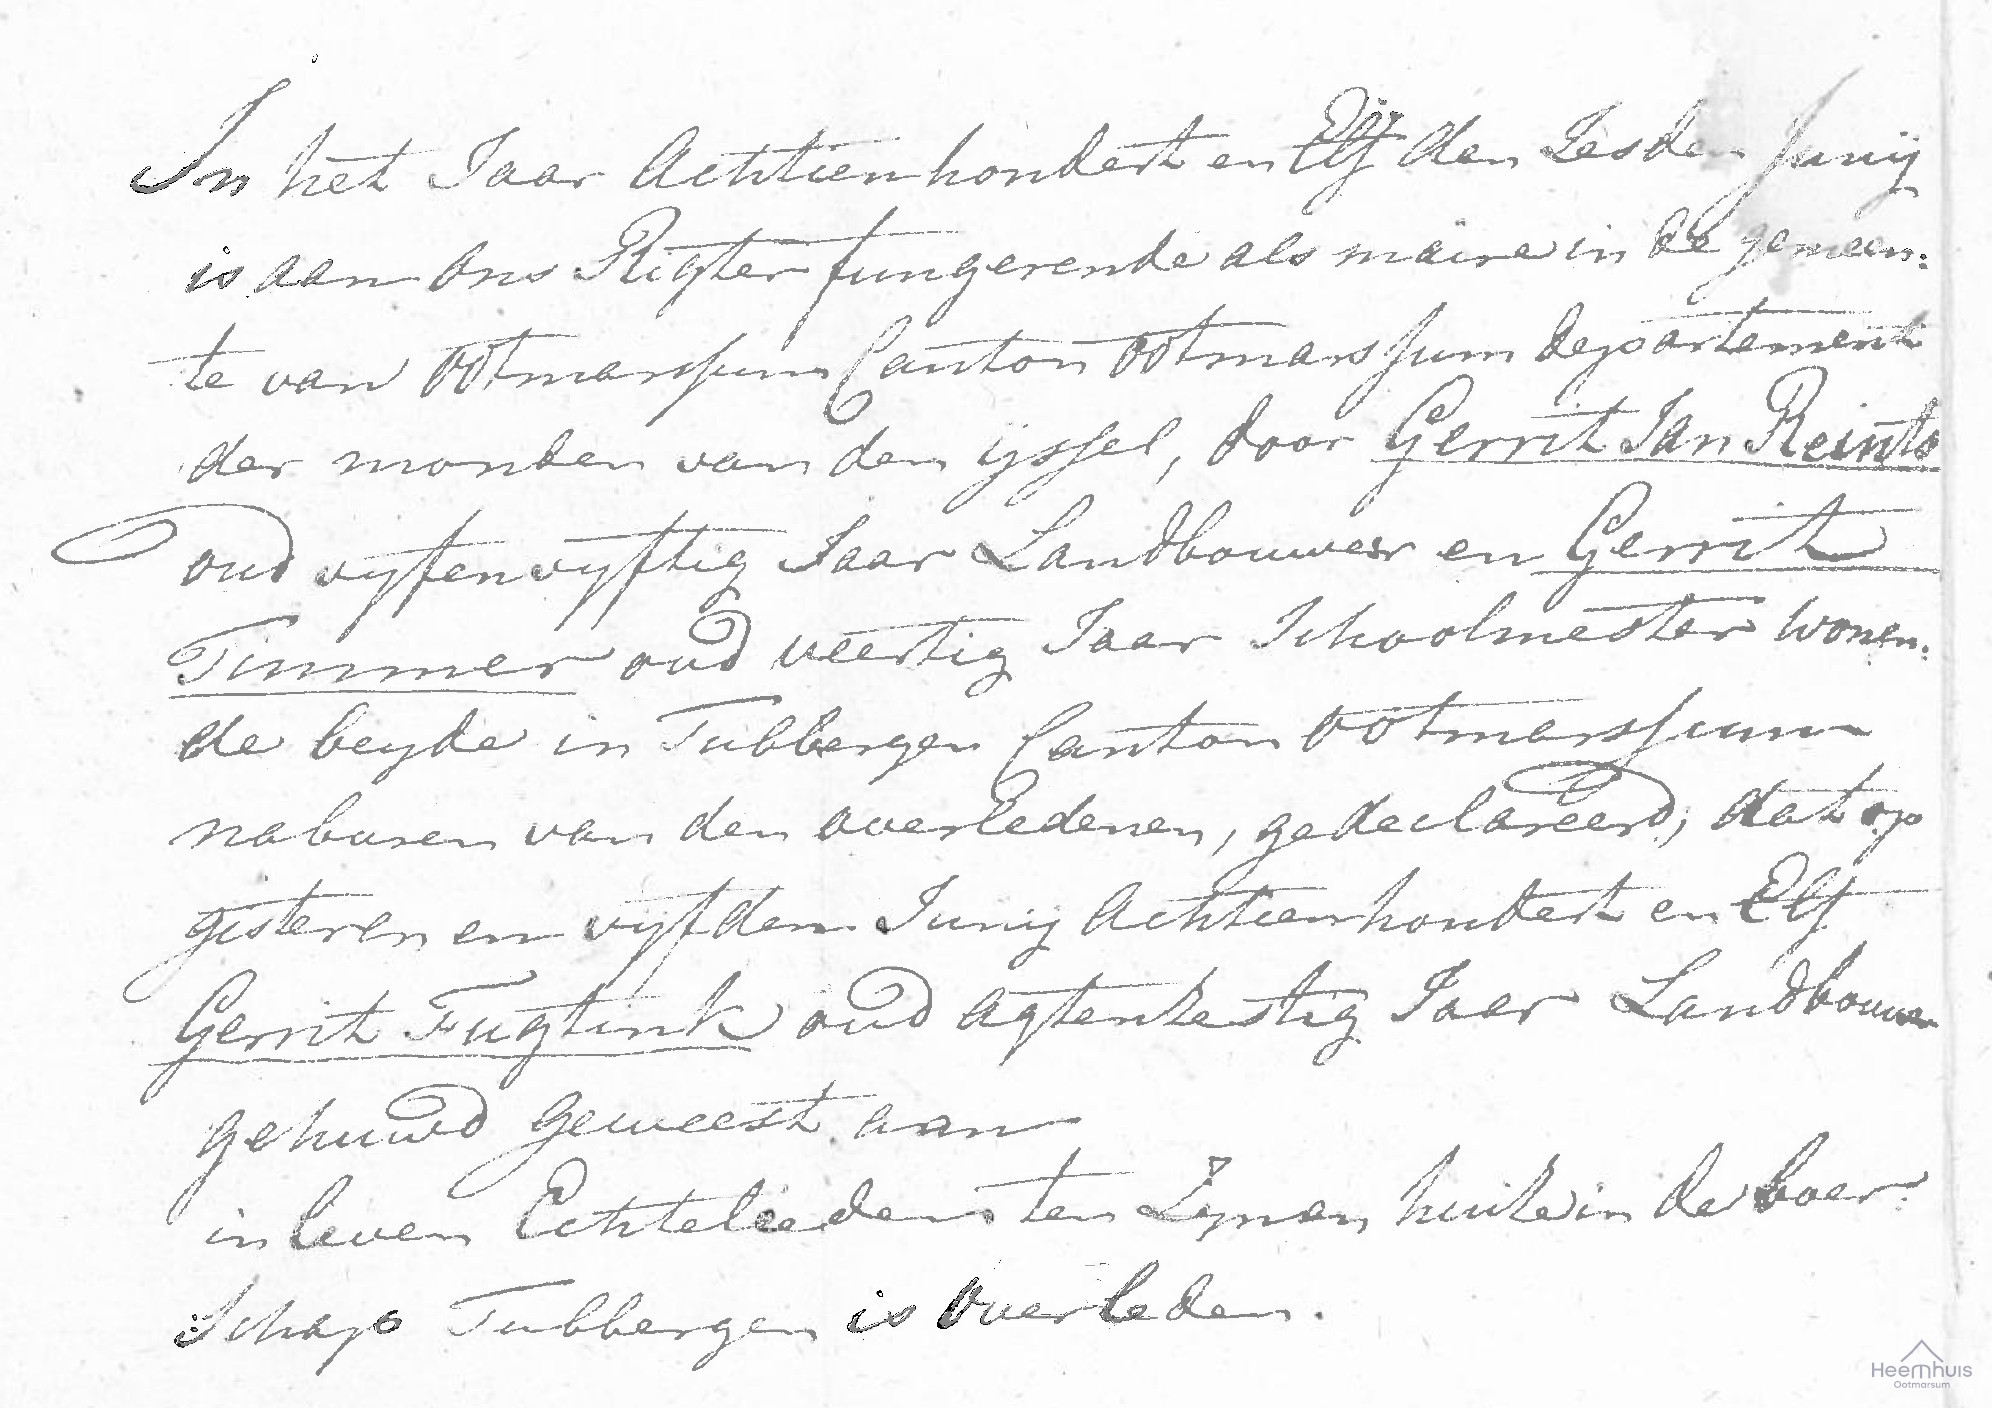 In het Jaar Achtien hondert en Elf den Zesden Junij
is aan ons Rigter fungerende als maire in de gemeen:
te van Ootmarssum Canton Ootmarssum departement
der monden van den ijssel, door Gerrit Jan Reints
oud vyfenvyftig Jaar Landbouwer en Gerrit
Timmer oud veertig Jaar Schoolmeester Wonen:
de beyde in Tubbergen Canton Ootmarssum
naburen van den overledenen, gedeclareerd, dat op
gisteren en vyfden Junij Achtienhondert en Elf
Gerrit Fugtink oud Agtenzestig Jaar Landbouwer
gehuwd geweest aan
in leven Echtelieden ten Zynen huize in de boer:
Schap Tubbergen is overleden.
Heemhuis
Ootmarsum